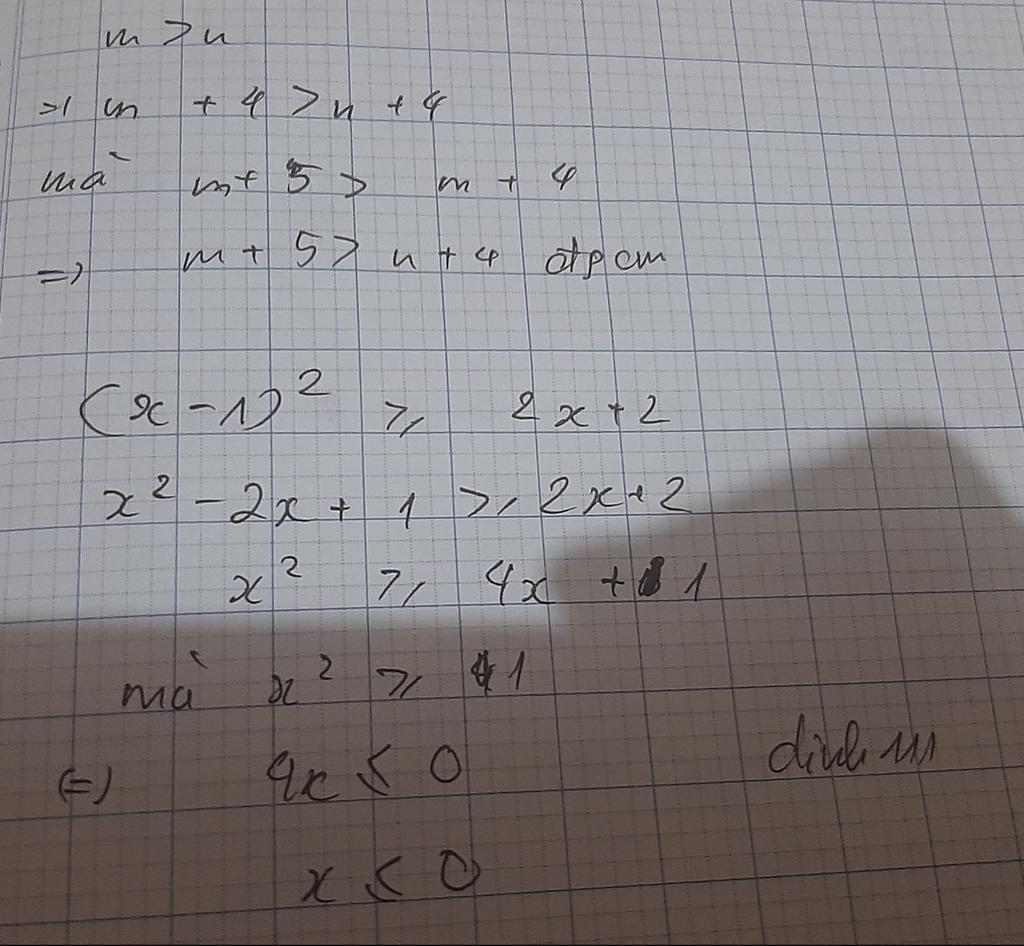 m > n
=> m + 4 > n + 4
mà m + 5 > m + 4
=> m + 5 > n + 4 đpcm
(x - 1)² ⩾ 2x + 2
x² - 2x + 1 ⩾ 2x + 2
x² ⩾ 4x + 1
mà x² ⩾ 1
(=) 4x < 0
x < 0